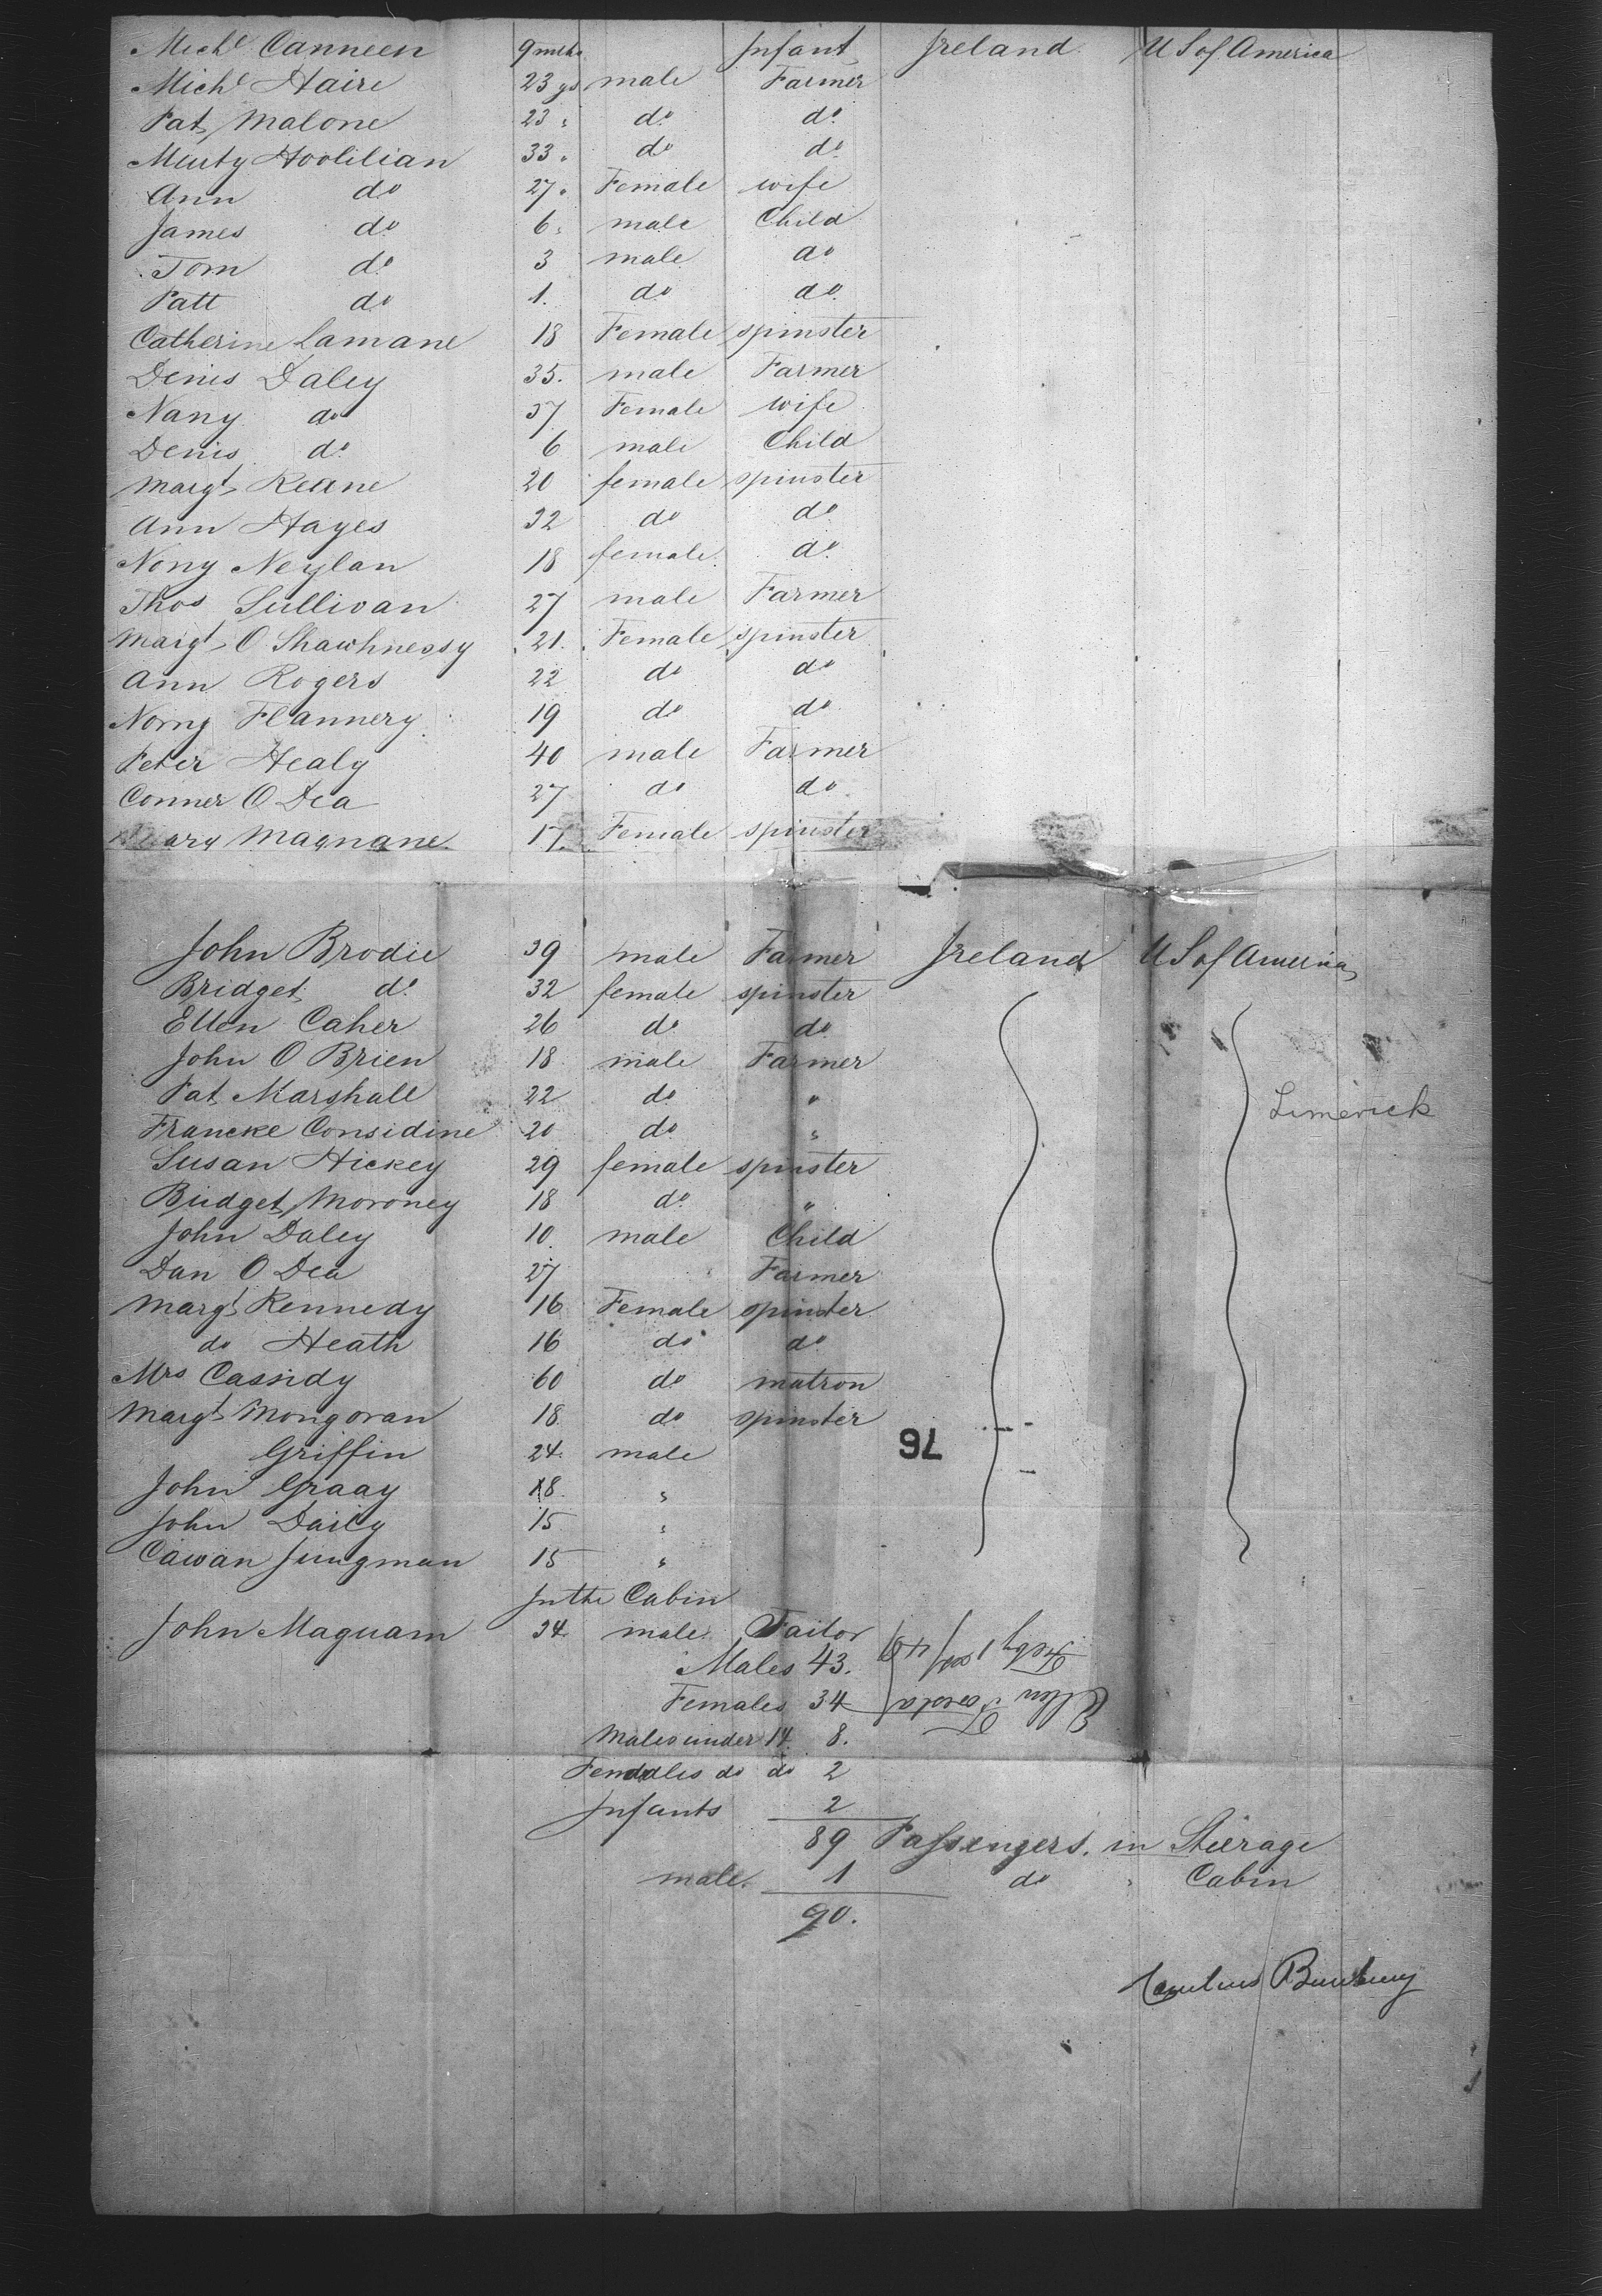 Michl Canneen 9 mths Infant Ireland U S of America
Michl Haire 23 ys male Farmer
Pat Malone 23 " do do
Murty Hoolilian 33 " do do
Ann do 27 " Female wife
James do 6 " male Child
Tom do 3 male do
Patt do 1. do do
Catherine Lamane 18 Female spinster
Denis Daley 35. male Farmer
Nany do 37 Female wife
Denis do 6 male Child
Margt Keane 20 female spinster
Ann Hayes 32 do do
Nony Neylan 18 female do
Thos Sullivan 27 male Farmer
Margt O Shawhnessy 21. Female spinster
Ann Rogers 22 do do
Norny Flannery 19 do do
Peter Healy 40 male Farmer
Conner O Dea 27 do do
Mary Magnane 17. Female spinster
John Brodie 39 male Farmer Ireland U S of America
Bridget do 32 female spinster
Ellen Caher 26 do do
John O Brien 18 male Farmer
Pat Marshall 22 do "
Limerick
Francke Considine 20 do "
Susan Hickey 29 female spinster
Bridget Moroney 18 do "
John Daley 10 male Child
Dan O Dea 27 Farmer
Margt Kennedy 16 Female spinster
do Heath 16 do do
Mrs Cassidy 60 do matron
Margt Mongovan 18 do spinster
Griffin 24 male
76
John Graay 18. "
John Daily 15 "
Cawan Jungman 15 "
In the Cabin
John Maguam 34 male Tailor
Males 43.
Females 34
Males under 14 8.
Females do do 2
Infants 2
89 Passengers. in Steerage
male. 1 do " Cabin
90.
Bunbury